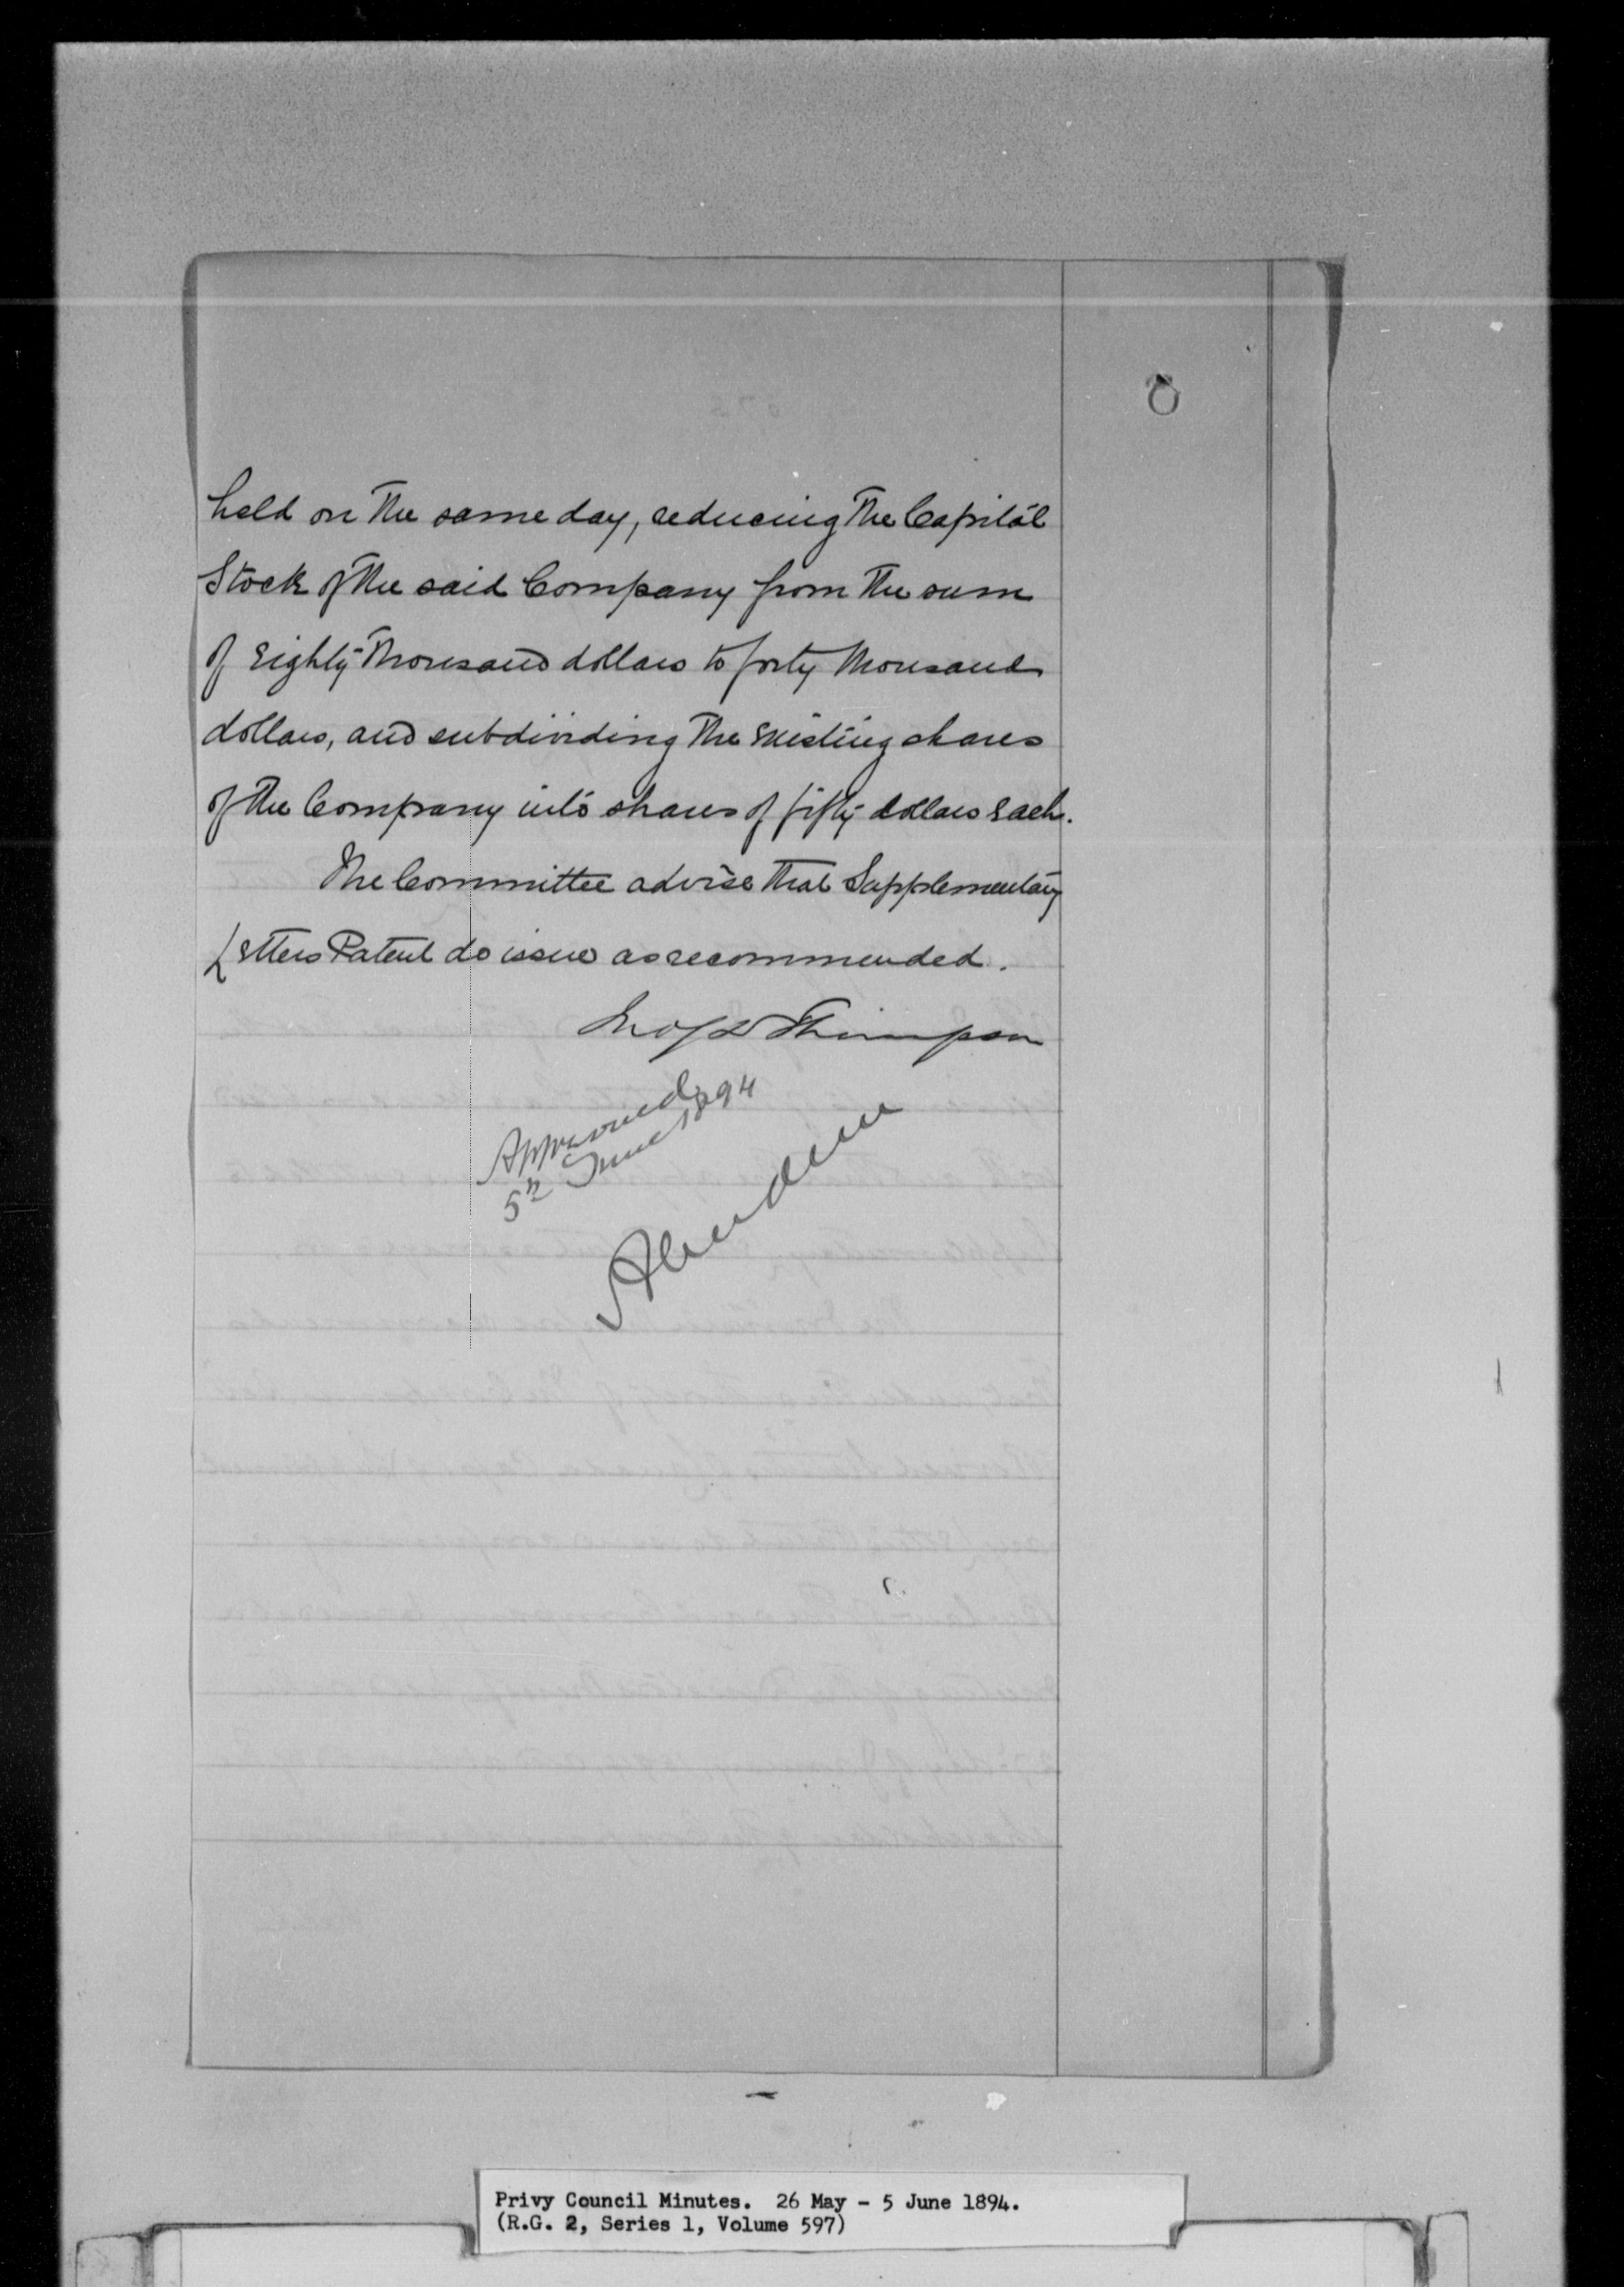 held on the same day, reducing the Capital
Stock of the said Company from the sum
of Eighty thousand dollars to forty thousand
dollars, and subdividing the existing shares
of the Company into shares of fifty dollars each.
The Committee advise that Supplementary
Letters Patent do issue as recommended.
Jno S D Thompson
Approved
5th June 1894
Aberdeen
Privy Council Minutes. 26 May - 5 June 1894.
(R.G. 2, Series 1, Volume 597)